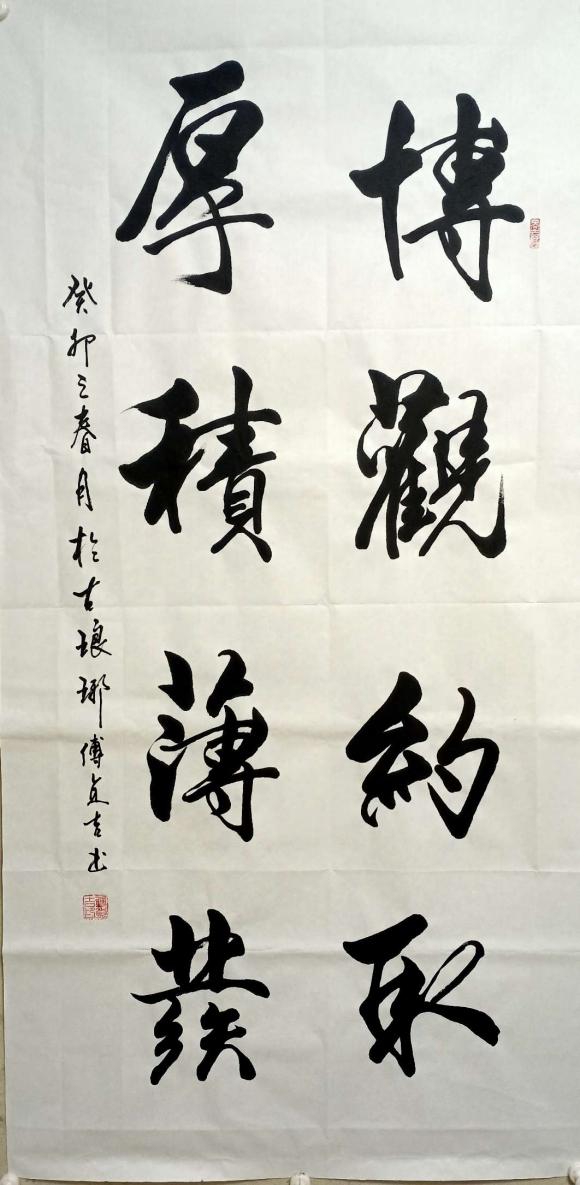 博觀約取
厚積薄發
癸卯之春月於古琅琊傅貞吉书